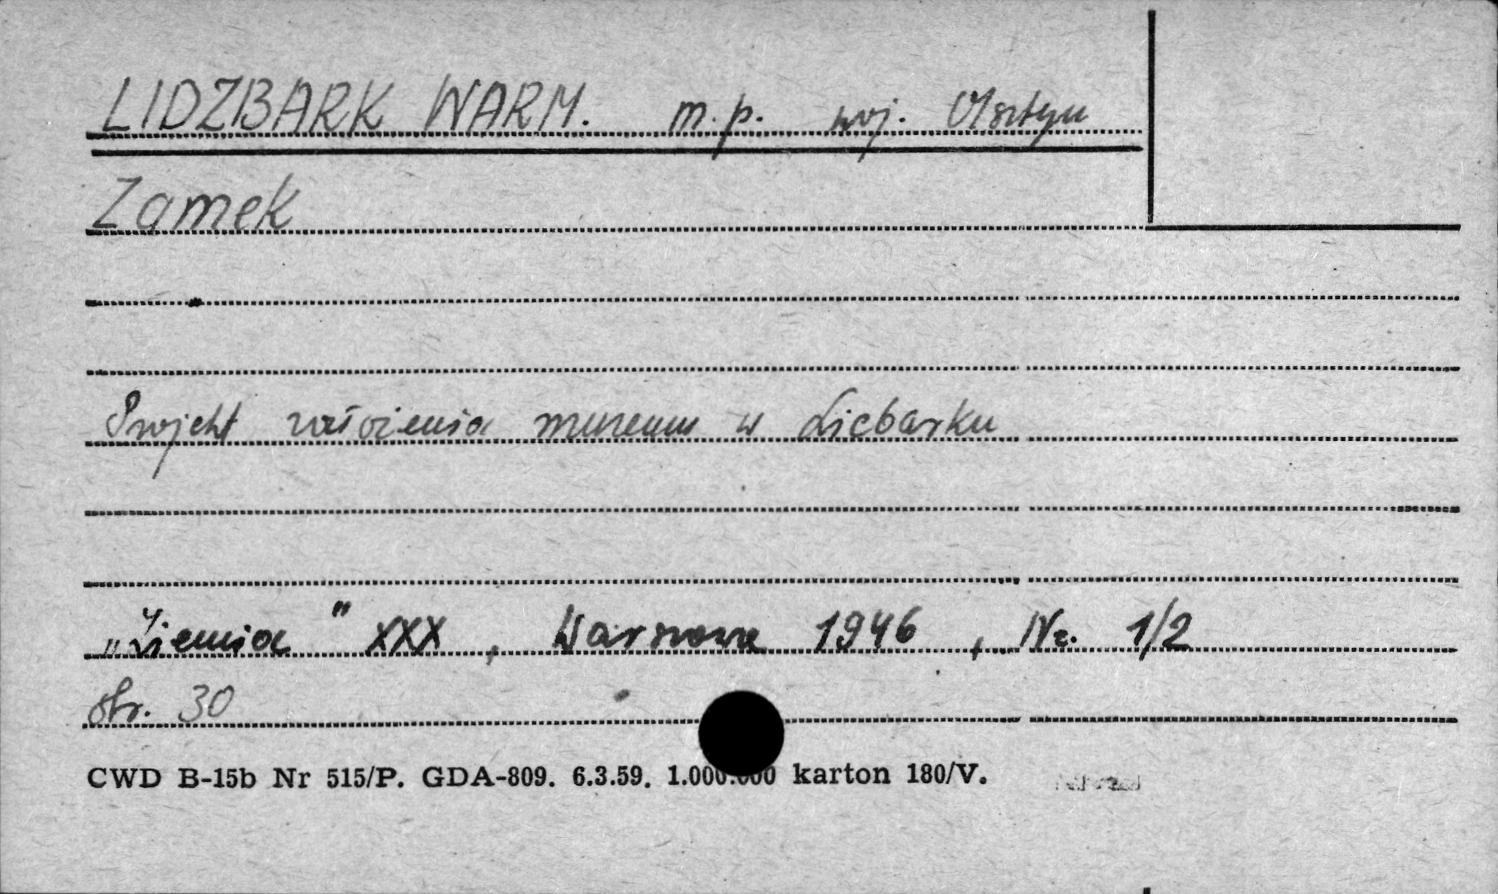 LIDZBARK WARM. m.p. woj. Olsztyn
Zamek
Projekt założenia muzeum w Licbarku
„Ziemia" XXX, Warszawa 1946, Nr. 1/2
str. 30
CWD B-15b Nr 515/P. GDA-809. 6.3.59. 1.000.000 karton 180/V.